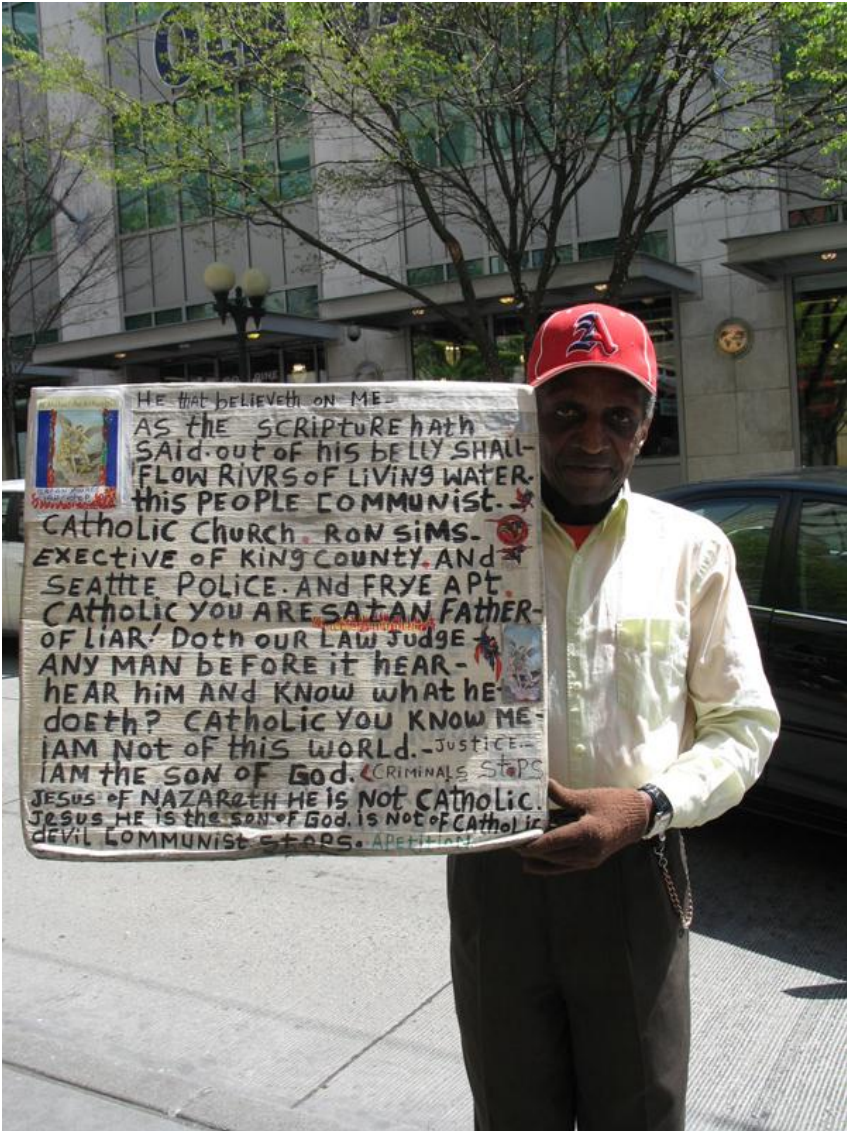 HE that bELIEVEth ON ME-
AS thE SCRIPtURE hAth
SAid.out of his bELLY SHALL-
FLOW RIVRS OF LIVING WATER.
this PEOPLE COMMUNISt.-
CAthOLIC ChURCh. RON SIMS-
EXECtiVE OF KING COUNTY. ANd
SEATTLE POLICE. ANd FRYE APt.
CAthOLIC YOU ARE SAtAN FAthER-
OF LiAR! Doth OUR LAW JUdgE-
ANY MAN bEFORE it hEAR-
hEAR hiM ANd KNOW whAt hE-
dOEth? CAthOLIC YOU KNOW ME-
iAM Not OF this WORLD.-JUSTICE.-
iAM thE SON OF God. CRIMINALS StOPS
JESUS OF NAZAREth HE iS NOt CAthOLIC.
JESUS HE is thE SON OF God. is NOt OF CAthOLIC
dEViL COMMUNiSt StOPS. APEtitiON
A